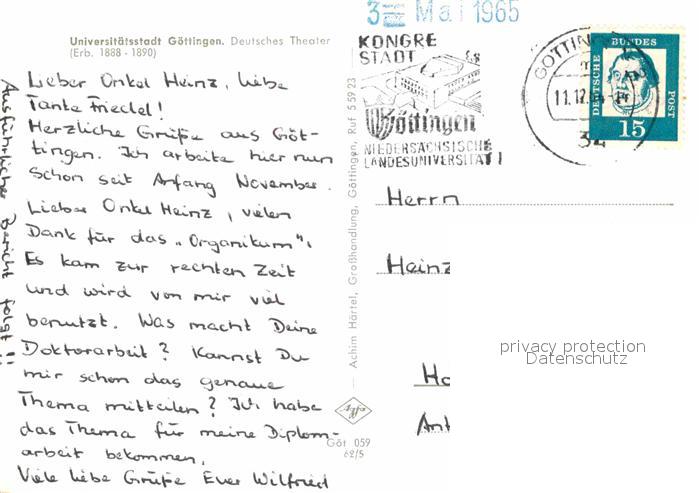 Universitätsstadt Göttingen. Deutsches Theater
(Erb. 1888 - 1890)
Lieber Onkel Heinz, liebe
Tante Friedel!
Herzliche Grüße aus Göt-
tingen. Ich arbeite hier nun
schon seit Anfang November.
Lieber Onkel Heinz, vielen
Dank für das „Organikum".
Es kam zur rechten Zeit
und wird von mir viel
benutzt. Was macht Deine
Doktorarbeit? Kannst Du
mir schon das genaue
Thema mitteilen? Ich habe
das Thema für meine Diplom-
arbeit bekommen.
Viele liebe Grüße Euer Wilfried
Ausführlicher Bericht folgt!!
Achim Härtel, Großhandlung, Göttingen, Ruf 5 59 23
Agfa
Göt 059
62/5
3 Mai 1965
KONGRE
STADT
Göttingen
NIEDERSÄCHSISCHE
LANDESUNIVERSITÄT
GÖTTINGEN
11.12.
34
DEUTSCHE
BUNDES
POST
15
Herrn
Heinz
Ho
Ant
privacy protection
Datenschutz